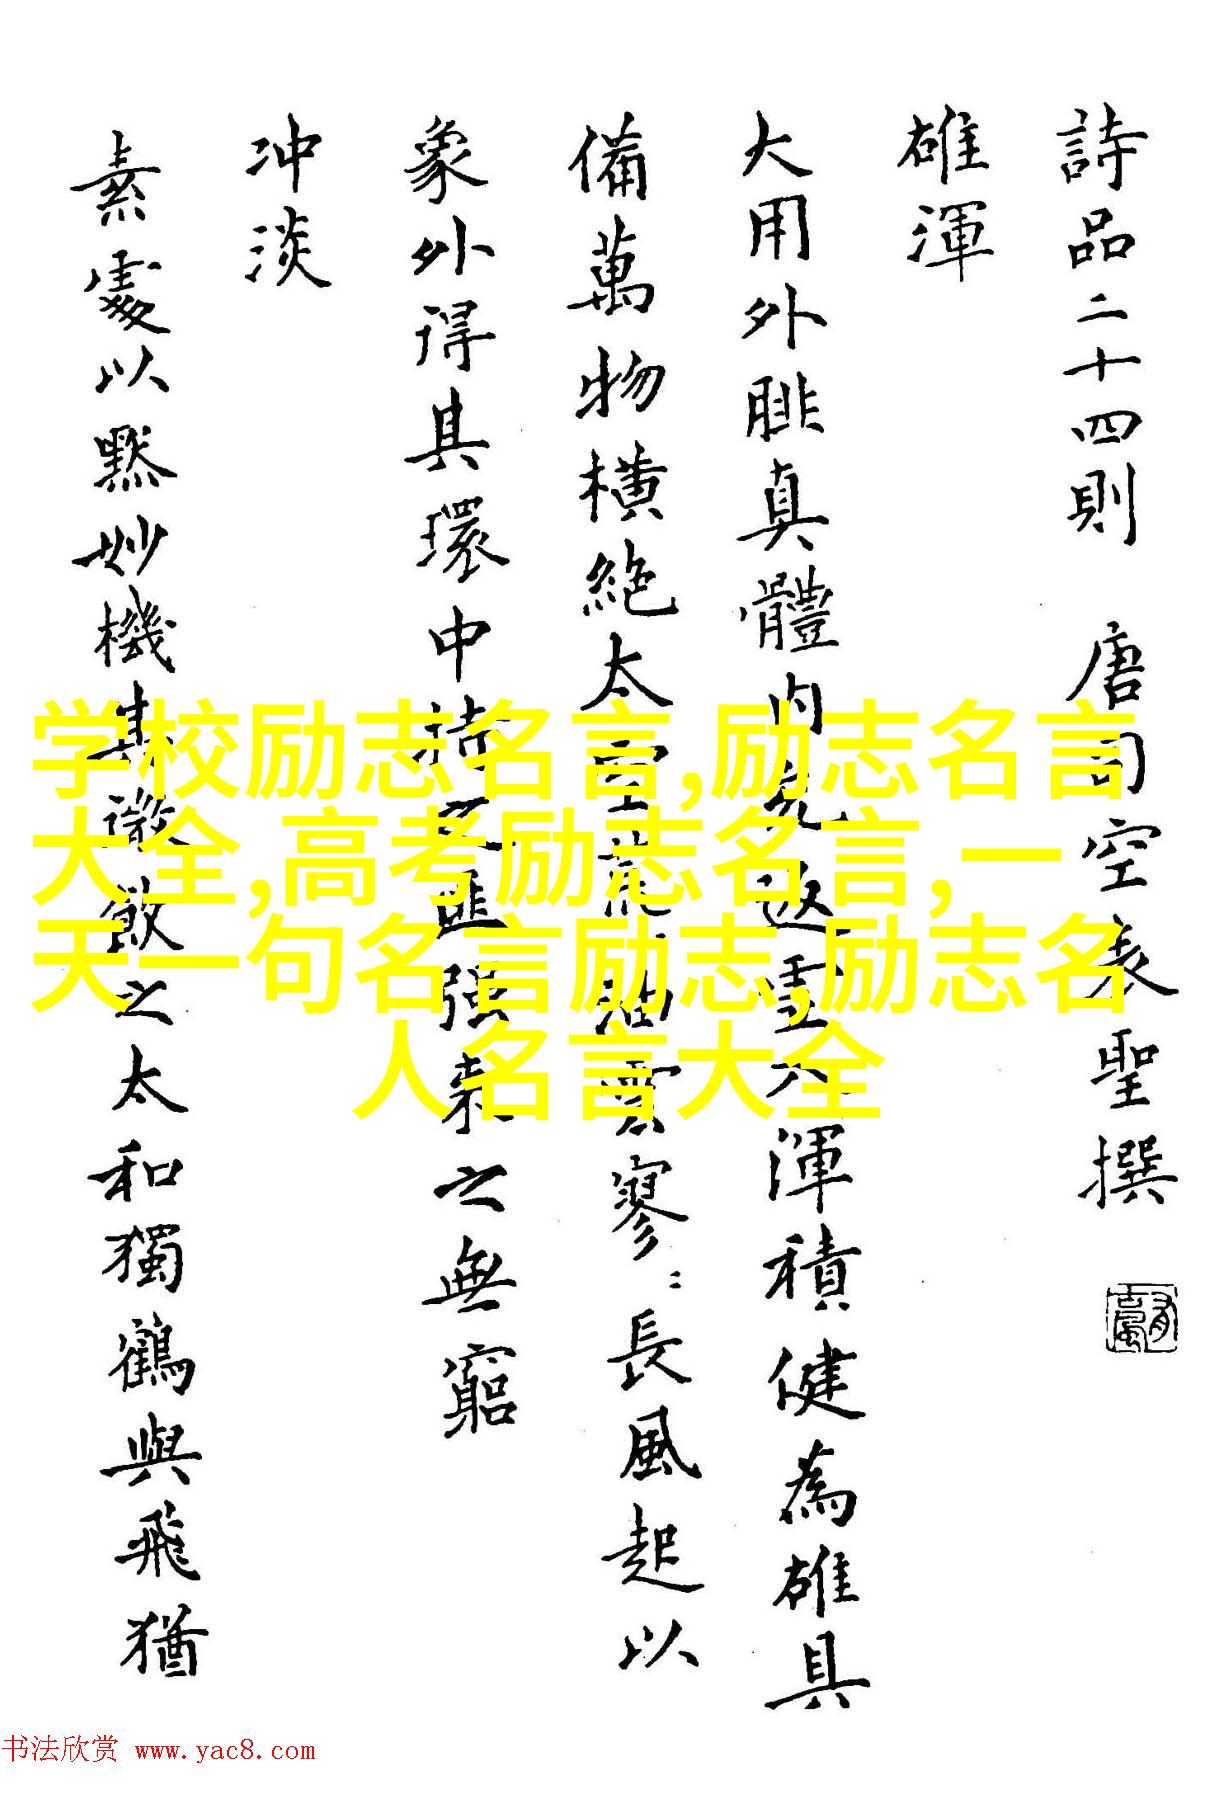 詩品二十四則 唐司空表聖撰
雄渾
大用外腓真體内充返虛入渾積健為雄具
備萬物橫絶太空荒〻油雲寥〻長風起以
象外得其環中持之匪强来之無窮
冲淡
素處以默妙機其微飲之太和獨鶴與飛猶
学校励志名言,励志名言
大全,高考励志名言,一
天一句名言励志,励志名
人名言大全
书法欣赏 www.yac8.com